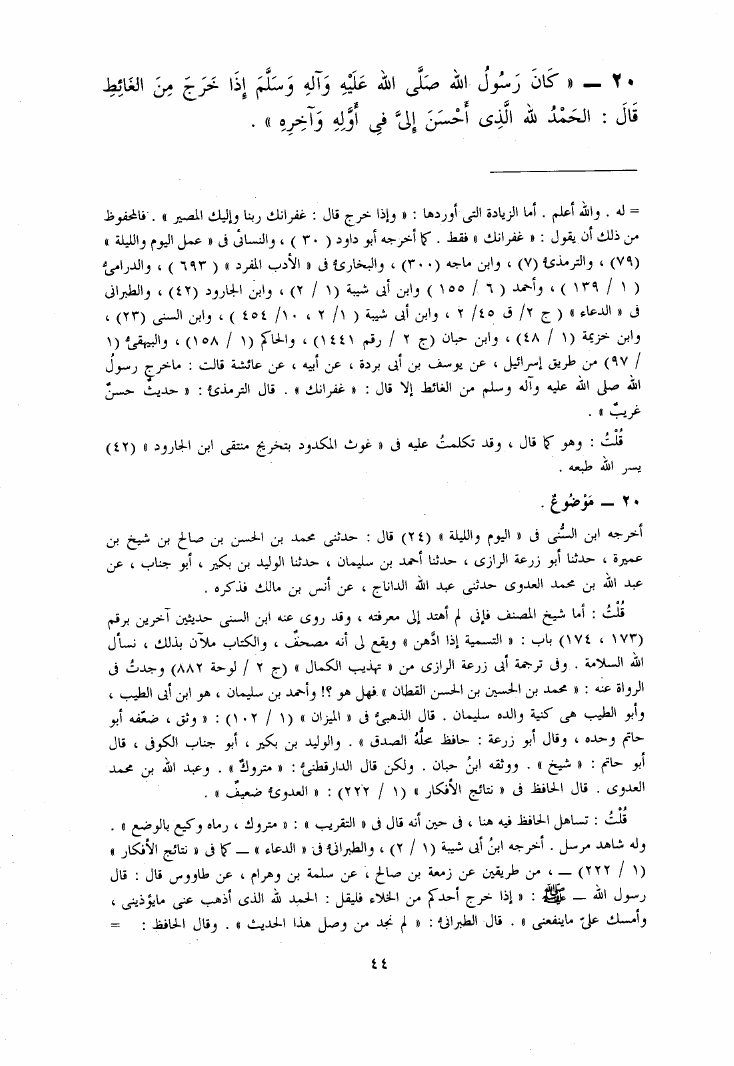 ٢٠ — « كَانَ رَسُولُ الله صَلَّى الله عَلَيْهِ وَآلِهِ وَسَلَّمَ إِذَا خَرَجَ مِنَ الغَائِطِ
قَالَ : الحَمْدُ لله الَّذِى أَحْسَنَ إِلىَّ فِى أَوَّلِهِ وَآخِرِهِ » .
= له . والله أعلم . أما الزيادة التى أوردها : « وإذا خرج قال : غفرانك ربنا وإليك المصير » . فالمحفوظ
من ذلك أن يقول : « غفرانك » فقط . كما أخرجه أبو داود ( ٣٠ ) ، والنسائى فى « عمل اليوم والليلة »
(٧٩) ، والترمذىُّ (٧) ، وابن ماجه (٣٠٠) ، والبخارىُّ فى « الأدب المفرد » ( ٦٩٣ ) ، والدرامىُّ
( ١ / ١٣٩ ) ، وأحمد ( ٦ / ١٥٥ ) وابن أبى شيبة (١ / ٢) ، وابن الجارود (٤٢) ، والطبرانى
فى « الدعاء » ( ج ٢/ ق ٤٥/ ٢ ، وابن أبى شيبة ( ١/ ٢ ، ١٠/ ٤٥٤ ) ، وابن السنى (٢٣) ،
وابن خزيمة (١ / ٤٨) ، وابن حبان (ج ٢ / رقم ١٤٤١) ، والحاكم (١ / ١٥٨) ، والبيهقىُّ (١
/ ٩٧) من طريق إسرائيل ، عن يوسف بن أبى بردة ، عن أبيه ، عن عائشة قالت : ماخرج رسولُ
الله صلى الله عليه وآله وسلم من الغائط إلا قال : « غفرانك » . قال الترمذىُّ : « حديثٌ حسنٌ
غريبٌ » .
قُلْتُ : وهو كما قال ، وقد تكلمتُ عليه فى « غوث المكدود بتخريج منتقى ابن الجارود » (٤٢)
يسر الله طبعه .
٢٠ — مَوْضُوعٌ .
أخرجه ابن السُّنى فى « اليوم والليلة » (٢٤) قال : حدثنى محمد بن الحسن بن صالح بن شيخ بن
عميرة ، حدثنا أبو زرعة الرازى ، حدثنا أحمد بن سليمان ، حدثنا الوليد بن بكير ، أبو جناب ، عن
عبد الله بن محمد العدوى حدثنى عبد الله الداناج ، عن أنس بن مالك فذكره .
قُلْتُ : أما شيخ المصنف فإنى لم أهتد إلى معرفته ، وقد روى عنه ابن السنى حديثين آخرين برقم
(١٧٣ ، ١٧٤) باب : « التسمية إذا ادَّهن » ويقع لى أنه مصحفٌ ، والكتاب ملآن بذلك ، نسأل
الله السلامة . وفى ترجمة أبى زرعة الرازى من « تهذيب الكمال » (ج ٢ / لوحة ٨٨٢) وجدتُ فى
الرواة عنه : « محمد بن الحسين بن الحسن القطان » فهل هو ؟! وأحمد بن سليمان ، هو ابن أبى الطيب ،
وأبو الطيب هى كنية والده سليمان . قال الذهبىُّ فى « الميزان » (١ / ١٠٢) : « وثق ، ضعّفه أبو
حاتم وحده ، وقال أبو زرعة : حافظ محلُّهُ الصدق » . والوليد بن بكير ، أبو جناب الكوفى ، قال
أبو حاتم : « شيخ » . ووثقه ابنُ حبان . ولكن قال الدارقطنىُّ : « متروكٌ » . وعبد الله بن محمد
العدوى . قال الحافظ فى « نتائج الأفكار » (١ / ٢٢٢) : « العدوىُّ ضعيفٌ » .
قُلْتُ : تساهل الحافظ فيه هنا ، فى حين أنه قال فى « التقريب » : « متروك ، رماه وكيع بالوضع » .
وله شاهد مرسل . أخرجه ابنُ أبى شيبة (١ / ٢) ، والطبرانىُّ فى « الدعاء » — كما فى « نتائج الأفكار »
(١ / ٢٢٢) — ، من طريقين عن زمعة بن صالح ، عن سلمة بن وهرام ، عن طاووس قال : قال
رسول الله — ﷺ : « إذا خرج أحدكم من الخلاء فليقل : الحمد لله الذى أذهب عنى مايؤذينى ،
وأمسك علىّ ماينفعنى » . قال الطبرانىُّ : « لم نجد من وصل هذا الحديث » . وقال الحافظ : =
٤٤